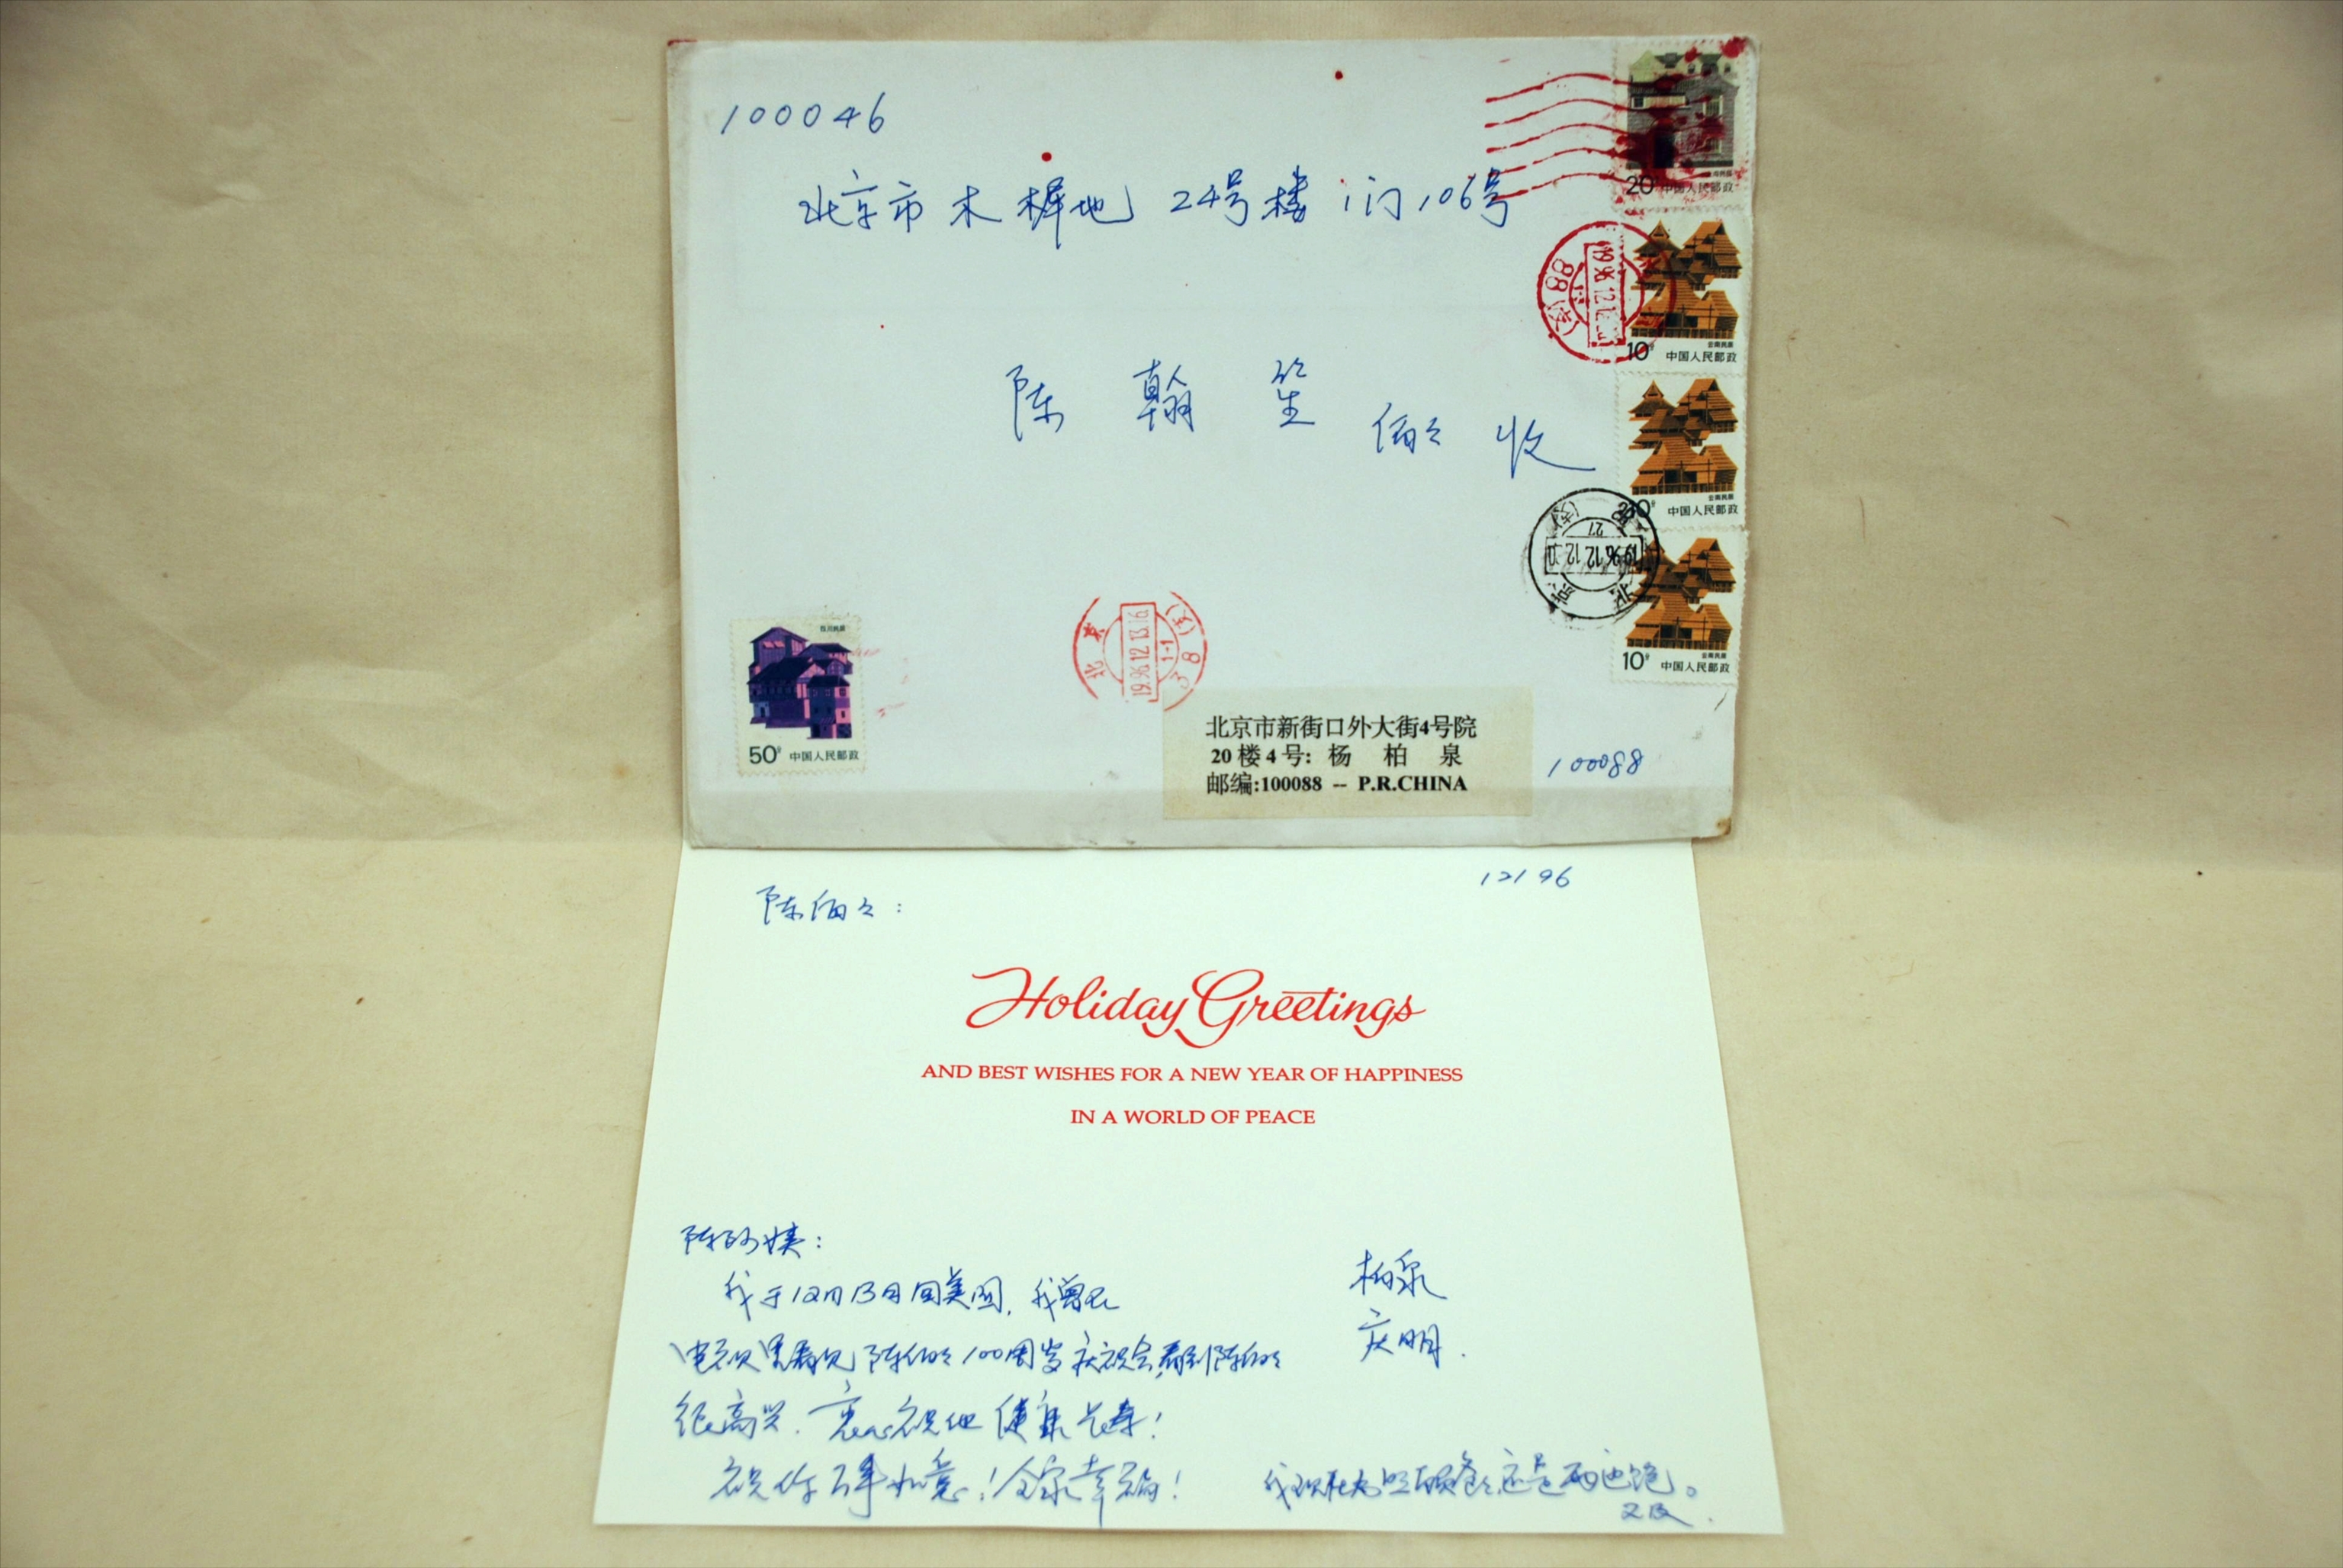 100046
北京市 木樨地 24号楼 1门106号
陈 翰 笙 伯伯 收
20分 中国人民邮政
云南民居
10分 中国人民邮政
云南民居
10分 中国人民邮政
云南民居
10分 中国人民邮政
四川民居
50分 中国人民邮政
北京
1996.12.13.16
北京
1996.12.12
北京市新街口外大街4号院
20楼4号: 杨 柏 泉
邮编:100088 -- P.R.CHINA
100088
陈伯伯:
Holiday Greetings
AND BEST WISHES FOR A NEW YEAR OF HAPPINESS
IN A WORLD OF PEACE
柏泉
庆明.
我于12月13日回美国, 我曾在
电视里看见陈伯伯100周岁庆祝会,看到陈伯伯
很高兴. 衷心祝他健康长寿!
祝你万事如意! 全家幸福!
我现在为照顾爸爸,还是两边跑。
又及.